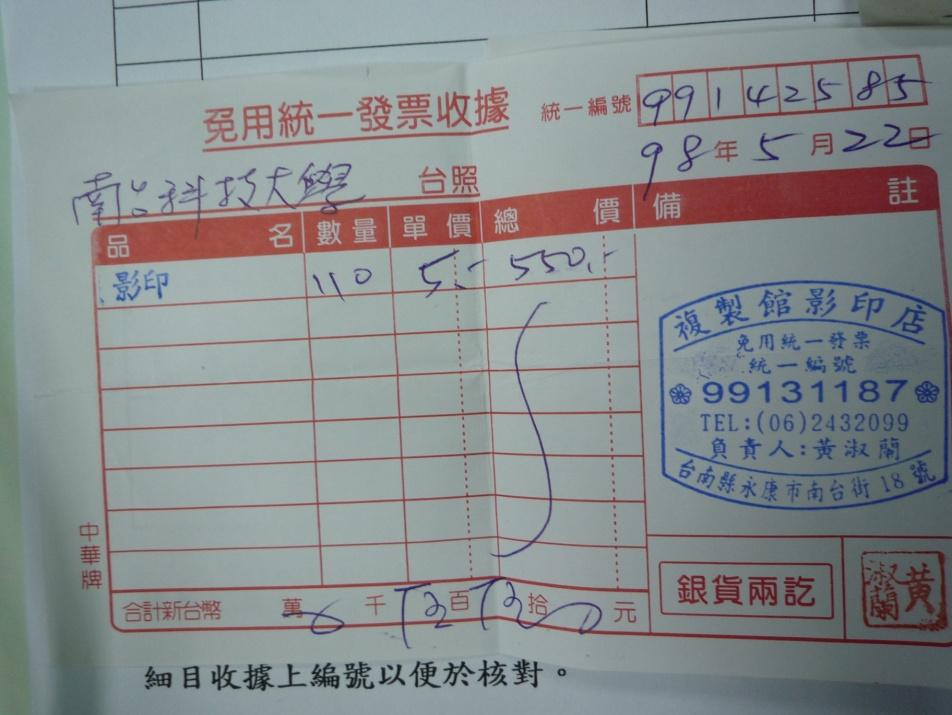 免用統一發票收據
統一編號 99142585
98年5月22日
南台科技大學 台照
品名 數量 單價 總價 備註
影印 110 5.- 550.-
複製館影印店
免用統一發票
統一編號
99131187
TEL:(06)2432099
負責人:黃淑蘭
台南縣永康市南台街18號
中華牌
合計新台幣 萬 千 伍百 伍拾 元
銀貨兩訖
黃淑蘭
細目收據上編號以便於核對。